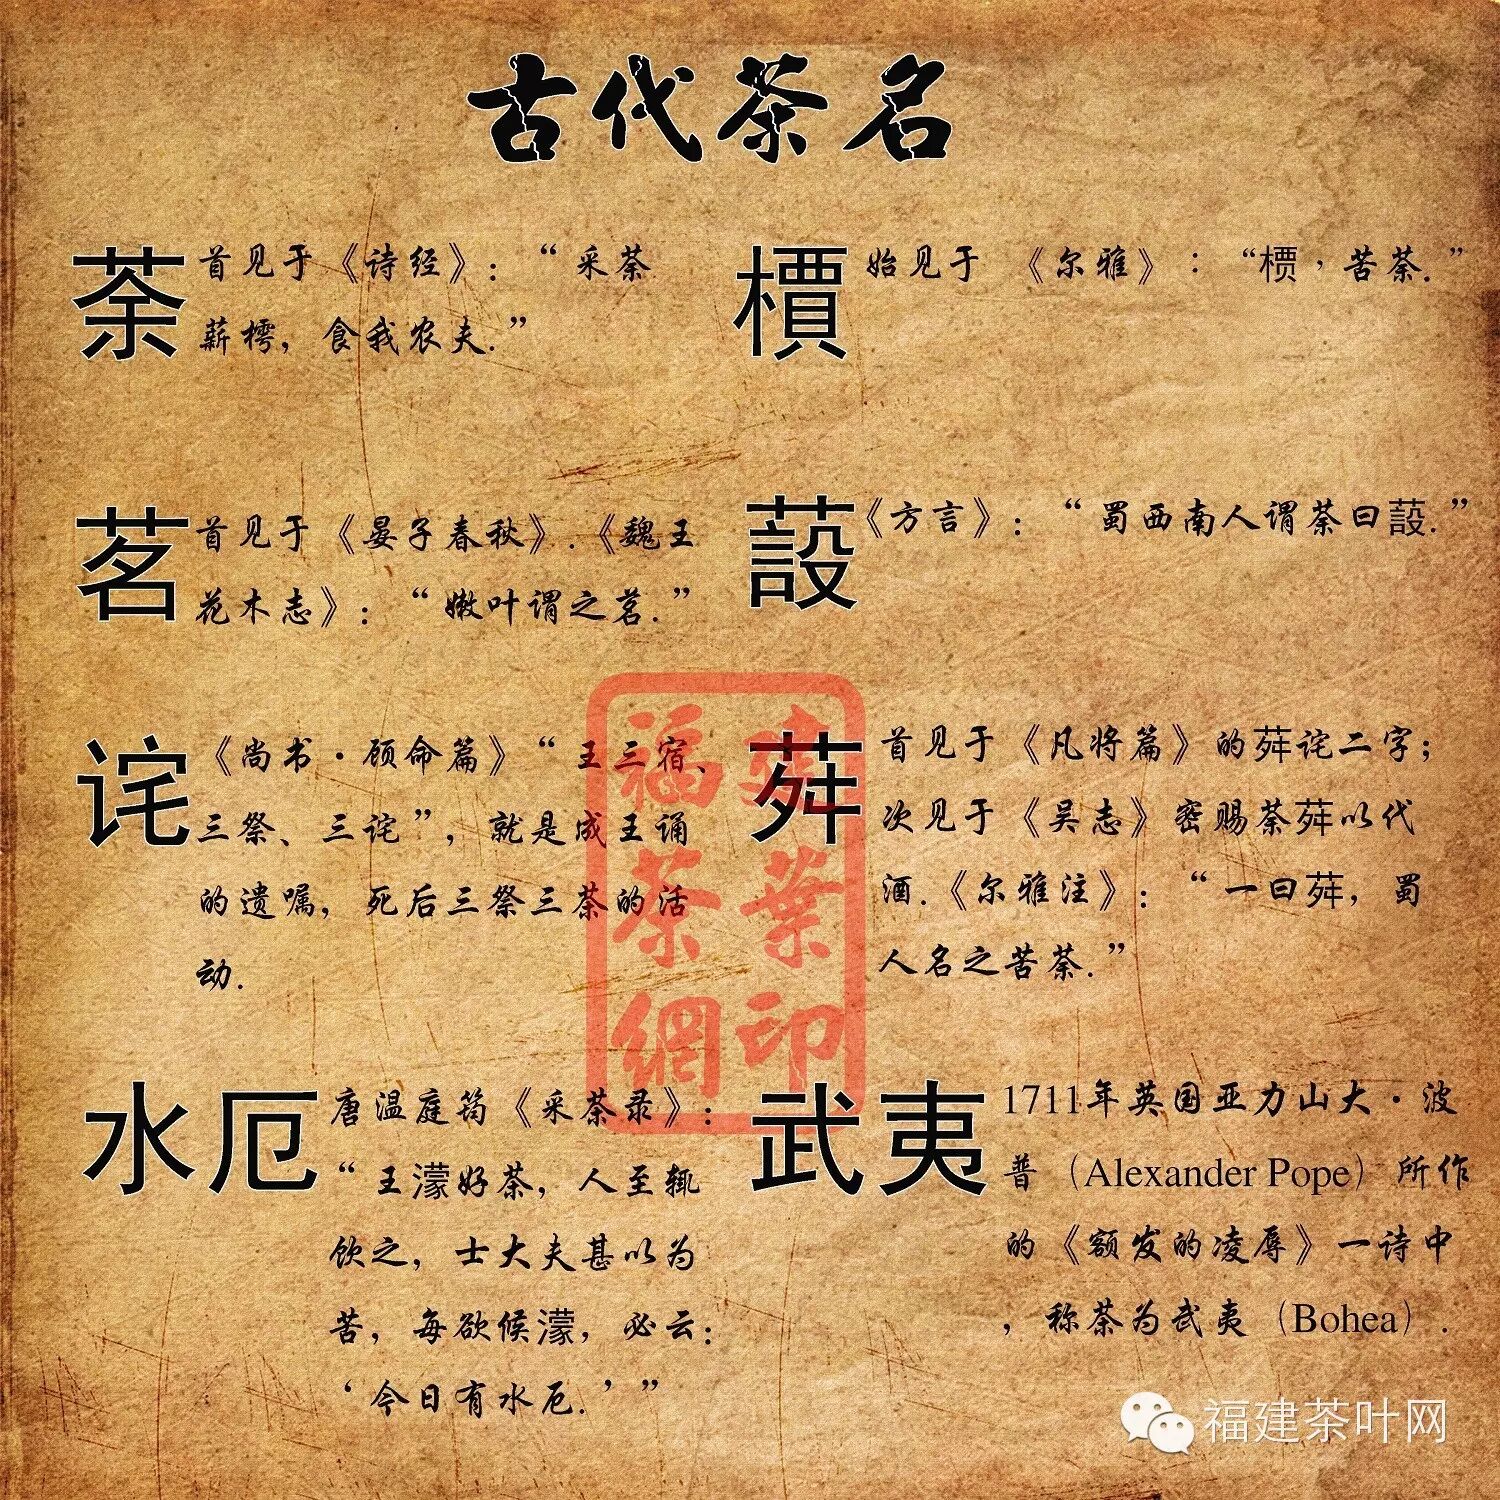 古代茶名
荼
首见于《诗经》：“采荼
薪樗，食我农夫.”
檟
始见于 《尔雅》：“槚，苦荼.”
茗
首见于《晏子春秋》.《魏王
花木志》：“嫩叶谓之茗.”
蔎
《方言》：“蜀西南人谓荼曰蔎.”
诧
《尚书·顾命篇》“王三宿、
三祭、三诧”，就是成王诵
的遗嘱，死后三祭三茶的活
动.
荈
首见于《凡将篇》的荈诧二字；
次见于《吴志》密赐茶荈以代
酒.《尔雅注》：“一曰荈，蜀
人名之苦荼.”
水厄
唐温庭筠《采茶录》：
“王濛好茶，人至辄
饮之，士大夫甚以为
苦，每欲候濛，必云：
‘今日有水厄.’”
武夷
1711年英国亚力山大·波
普（Alexander Pope）所作
的《额发的凌辱》一诗中
，称茶为武夷（Bohea）.
福建
茶葉
網印
福建茶叶网